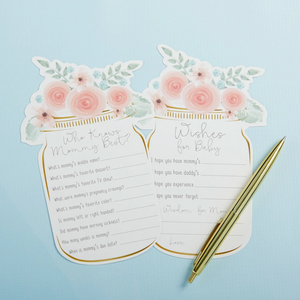 Who Knows
Mommy Best?
What's mommy's middle name?
What's mommy's favorite dessert?
What's mommy's favorite TV show?
What were mommy's pregnancy cravings?
What's mommy's favorite color?
Is mommy left or right handed?
Did mommy have morning sickness?
How many siblings is mommy?
What is mommy's due date?
Wishes
for Baby
I hope you have mommy's
I hope you have daddy's
I hope you experience
I hope you never forget
Wisdom for Mommy
Love,